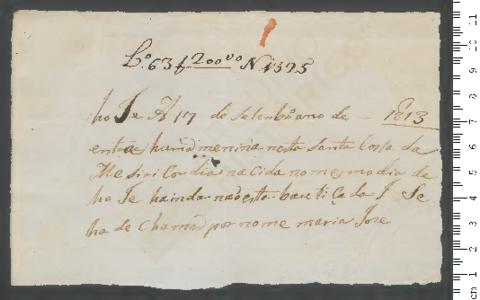 Lº 63 f 200 vº N 1395
hoJe A 17 de Setenbro ano de - 1813
entra huma menina nesta Santa Caza da
Mesiricordia nacida no mesmo dia de
hoJe hainda não esta bautiçada J Se
ha de Chamar por nome maria Joze
cm 1 2 3 4 5 6 7 8 9 10 11